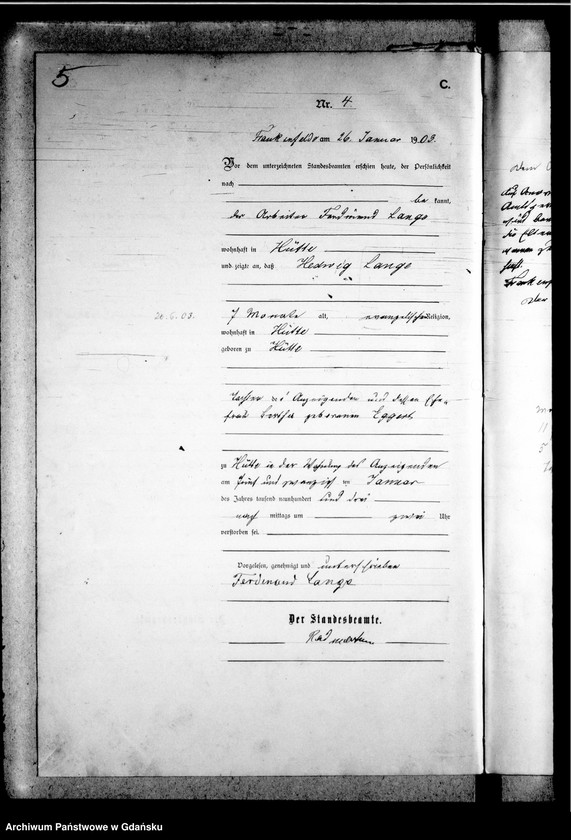 5
C.
Nr. 4.
Frankenfelde am 26. Januar 1903.
Vor dem unterzeichneten Standesbeamten erschien heute, der Persönlichkeit
nach
be kannt,
der Arbeiter Ferdinand Lange
wohnhaft in Hütte
und zeigte an, daß Hedwig Lange
7 Monate alt, evangelischer Religion,
wohnhaft in Hütte
geboren zu Hütte
Tochter des Anzeigenden und dessen Ehe-
frau Bertha geborenen Eggert
zu Hütte in der Wohnung des Anzeigenden
am fünf und zwanzigsten Januar
des Jahres tausend neunhundert und drei
nach mittags um zwei Uhr
verstorben sei.
Vorgelesen, genehmigt und unterschrieben
Ferdinand Lange
Der Standesbeamte.
20.6.03.
Archiwum Państwowe w Gdańsku